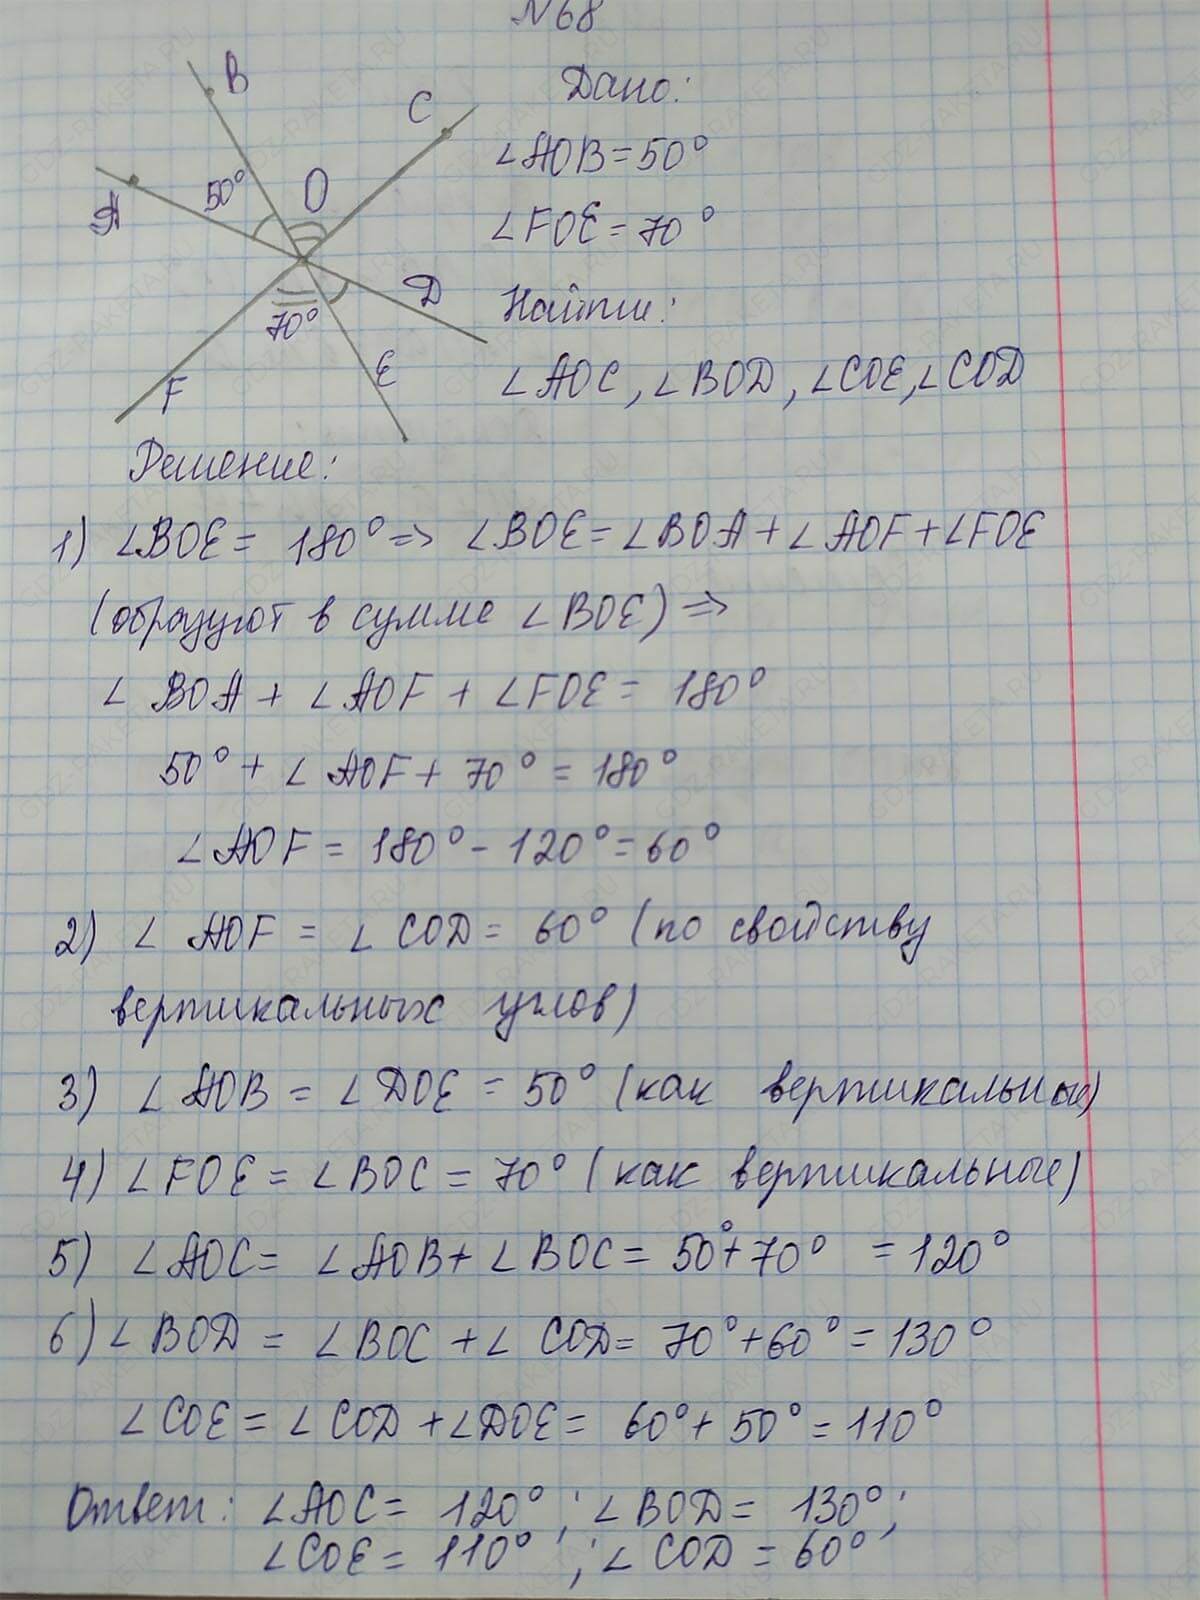 N68
B
C
Дано:
∠AOB = 50°
50°
O
A
∠FOE = 70°
D
Найти:
70°
F
E
∠AOC, ∠BOD, ∠COE, ∠COD
Решение:
1) ∠BOE = 180° => ∠BOE = ∠BOA + ∠AOF + ∠FOE
(образуют в сумме ∠BOE) =>
∠BOA + ∠AOF + ∠FOE = 180°
50° + ∠AOF + 70° = 180°
∠AOF = 180° - 120° = 60°
2) ∠AOF = ∠COD = 60° (по свойству
вертикальных углов)
3) ∠AOB = ∠DOE = 50° (как вертикальные)
4) ∠FOE = ∠BOC = 70° (как вертикальные)
5) ∠AOC = ∠AOB + ∠BOC = 50° + 70° = 120°
6) ∠BOD = ∠BOC + ∠COD = 70° + 60° = 130°
∠COE = ∠COD + ∠DOE = 60° + 50° = 110°
Ответ: ∠AOC = 120°; ∠BOD = 130°;
∠COE = 110°; ∠COD = 60°
GDZ-RAKETA.RU